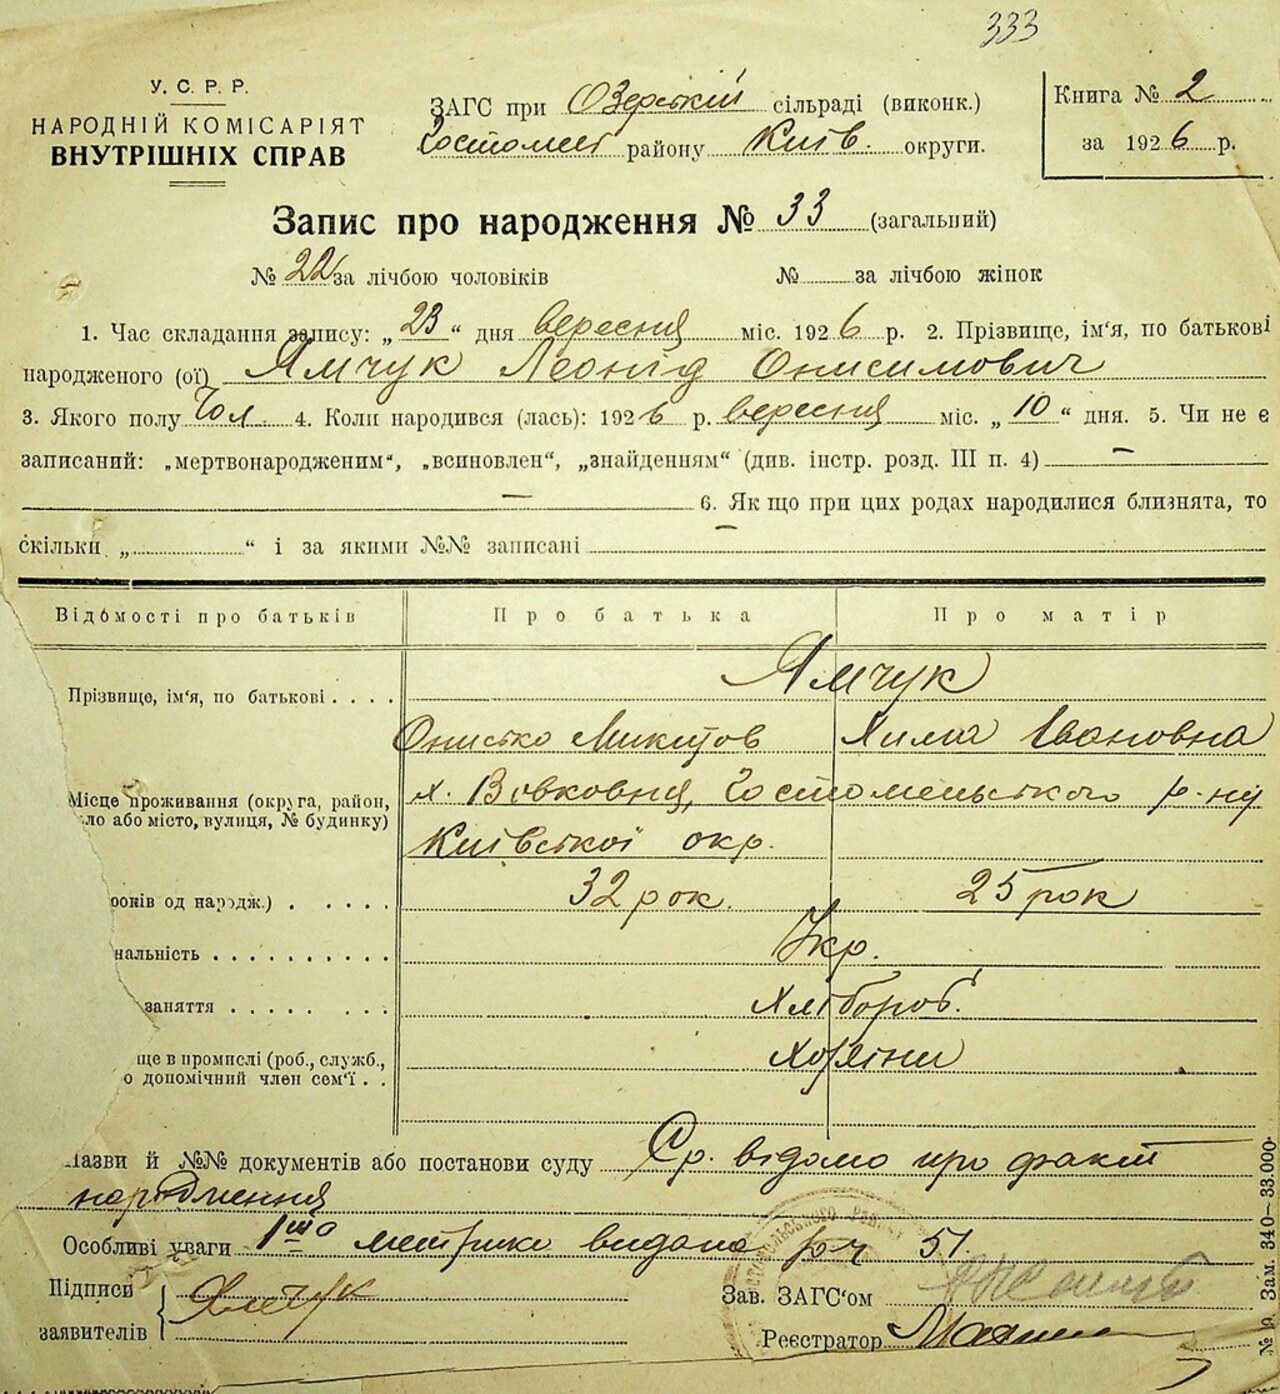 333
У. С. Р. Р.
НАРОДНІЙ КОМІСАРІЯТ
ВНУТРІШНІХ СПРАВ
ЗАГС при Озерській сільраді (виконк.)
Гостомел району Київ. округи.
Книга № 2
за 1926 р.
Запис про народження № 33 (загальний)
№ 22 за лічбою чоловіків № за лічбою жінок
1. Час складання запису: „23“ дня вересня міс. 1926 р. 2. Прізвище, ім'я, по батькові
народженого (ої) Ямчук Леонід Онисимович
3. Якого полу Чол. 4. Коли народився (лась): 1926 р. вересня міс. „10“ дня. 5. Чи не є
записаний: „мертвонародженим“, „всиновлен“, „знайденням“ (див. інстр. розд. III п. 4) —
— 6. Як що при цих родах народилися близнята, то
скільки „ — “ і за якими №№ записані
Відомості про батьків Про батька Про матір
Прізвище, ім'я, по батькові . . . . Ямчук
Онисько Микитов Хима Івановна
Місце проживання (округа, район, х. Вовковня, Гостомельського р-ну
ло або місто, вулиця, № будинку) Київської окр.
років од народж.) . . . . . 32 рок. 25 рок
нальність . . . . . . . . . . Укр.
заняття . . . . . . . . Хлібороб.
ще в промислі (роб., служб., Хозяїни
о допомічний член сем'ї . .
Назви й №№ документів або постанови суду Ср. відомо про факт
народження
Особливі уваги 1шо метрика видана 51.
Підписи Ямчук
заявителів
Зав. ЗАГС'ом
Реєстратор
№ 9. Зам. 340—33.000.